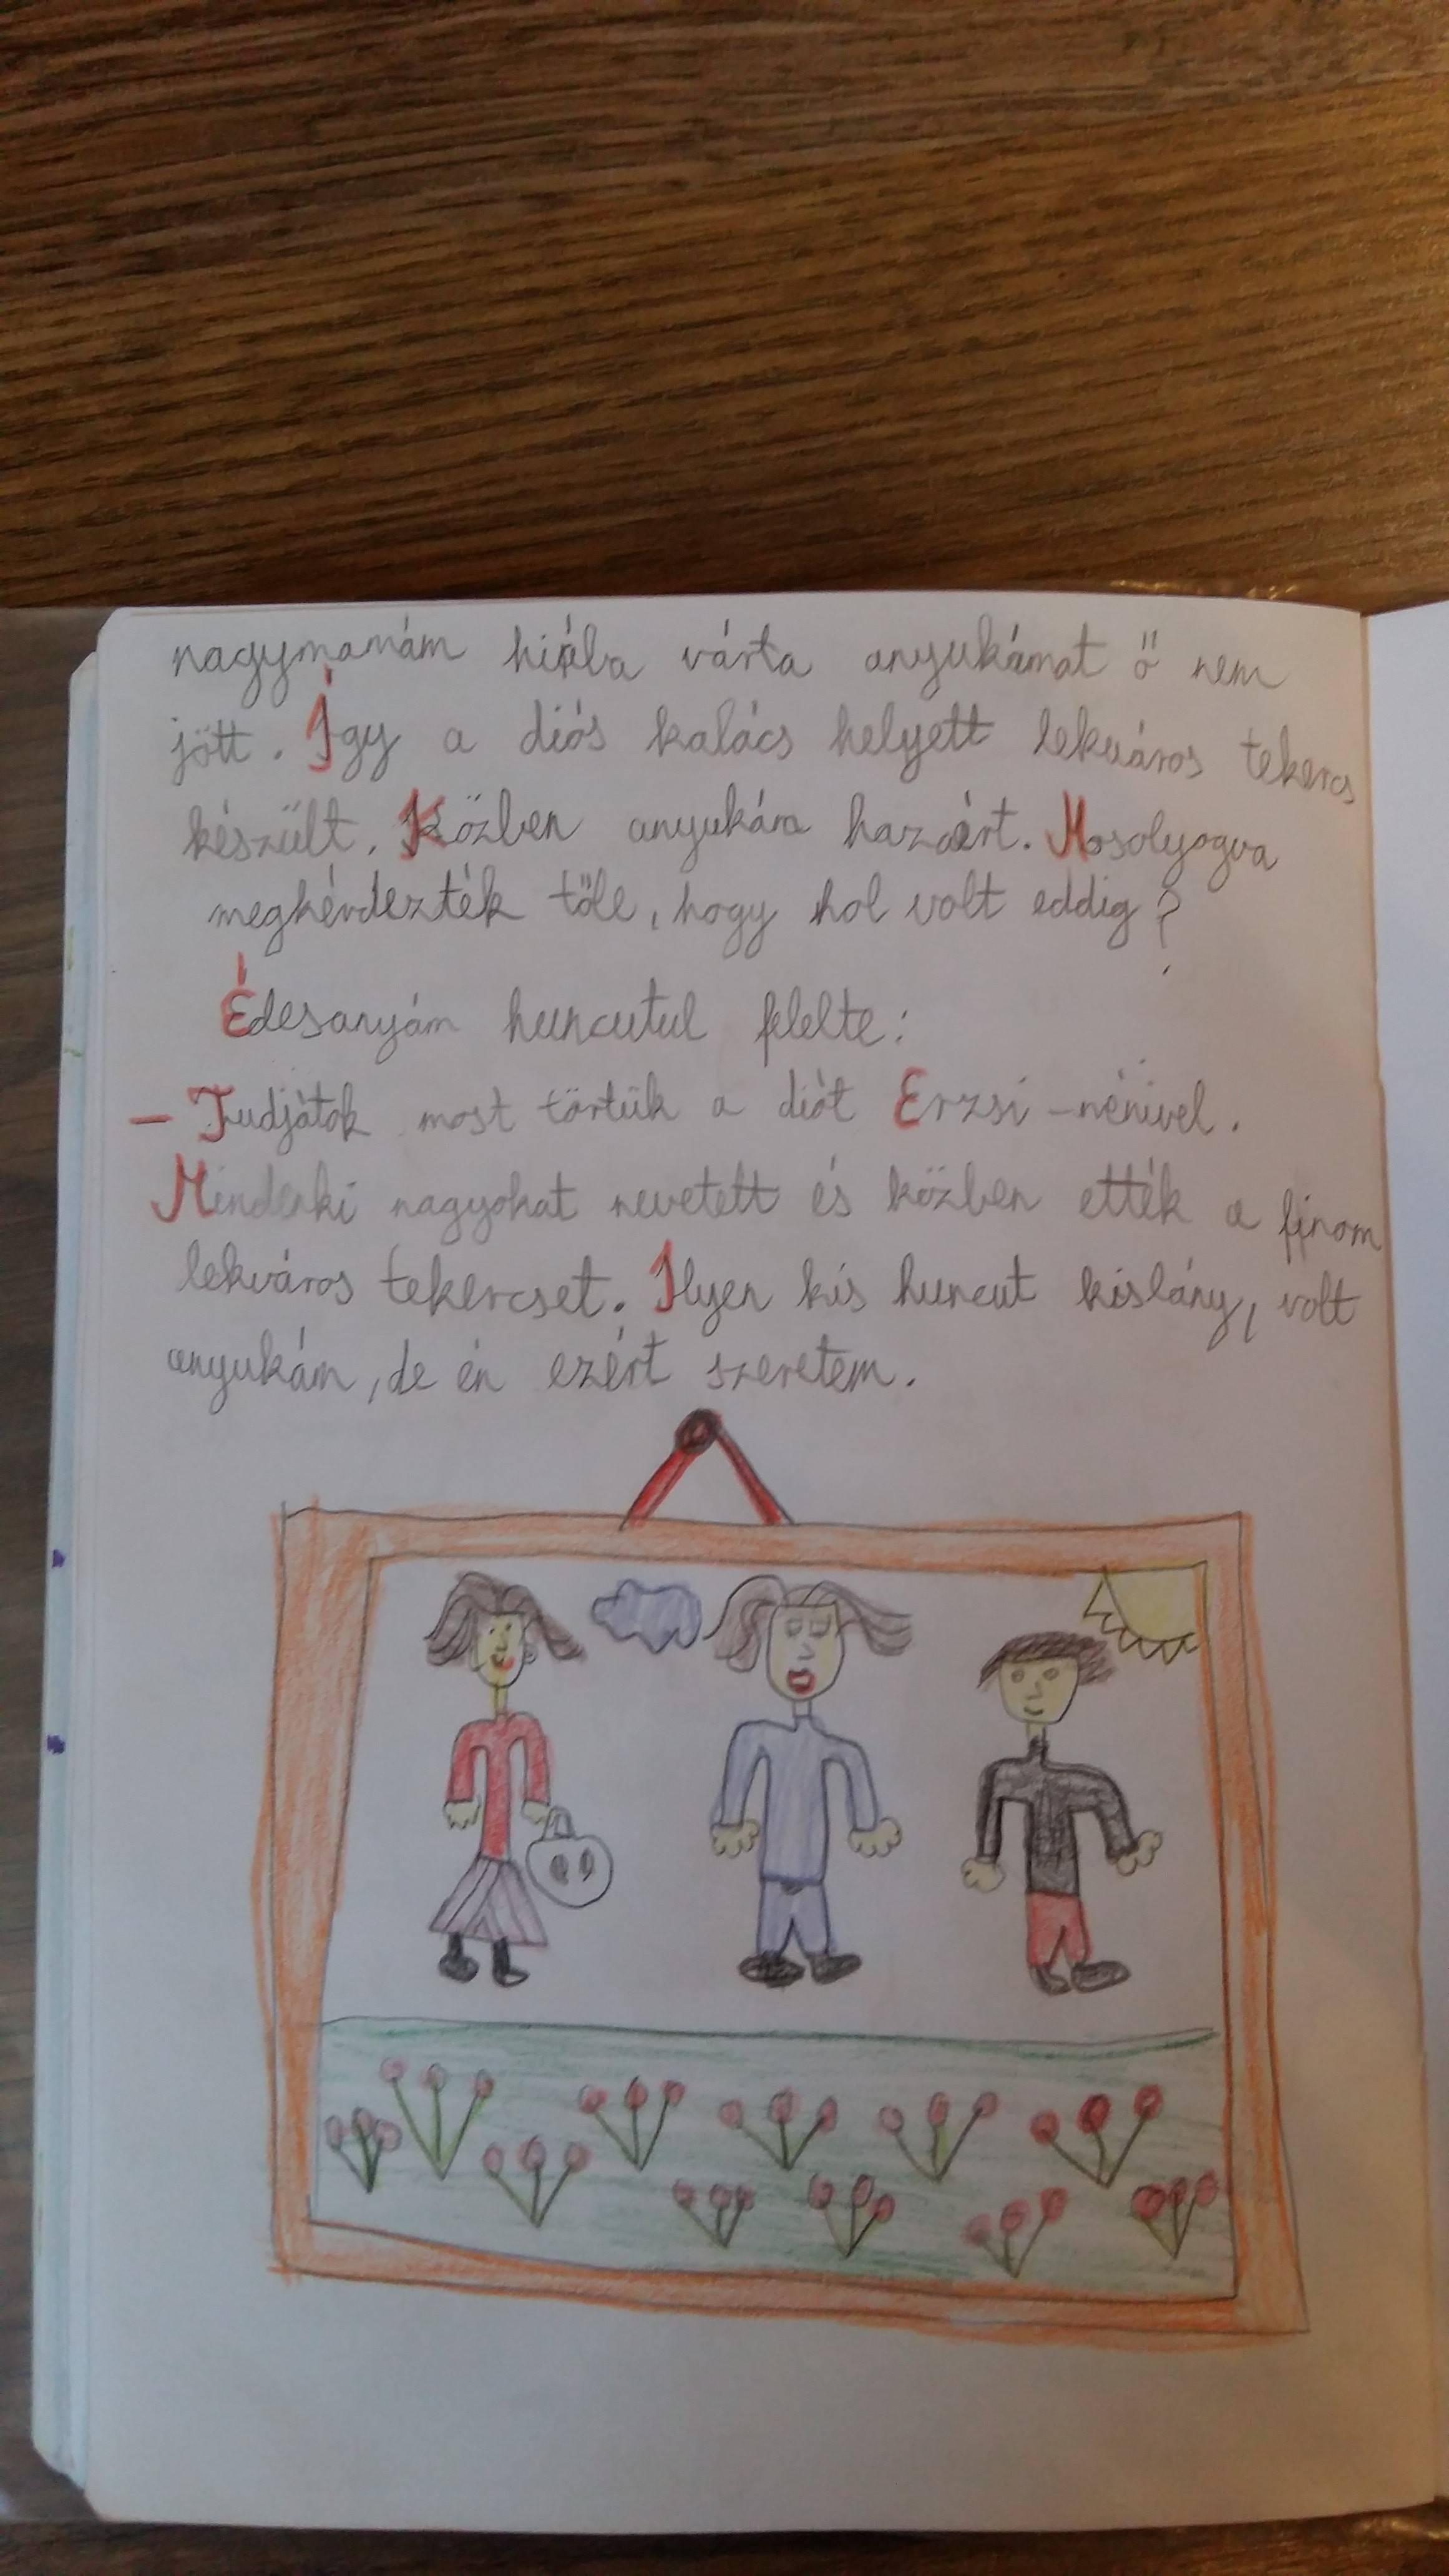 nagymamám hiába várta anyukámat ő nem
jött. Így a diós kalács helyett lekváros tekercs
készült. Közben anyukám hazaért. Mosolyogva
megkérdezték tőle, hogy hol volt eddig?
Édesanyám huncutul felelte:
– Tudjátok most törtük a diót Erzsi-nénivel.
Mindenki nagyokat nevetett és közben ették a finom
lekváros tekercset. Ilyen kis huncut kislány, volt
anyukám, de én ezért szeretem.